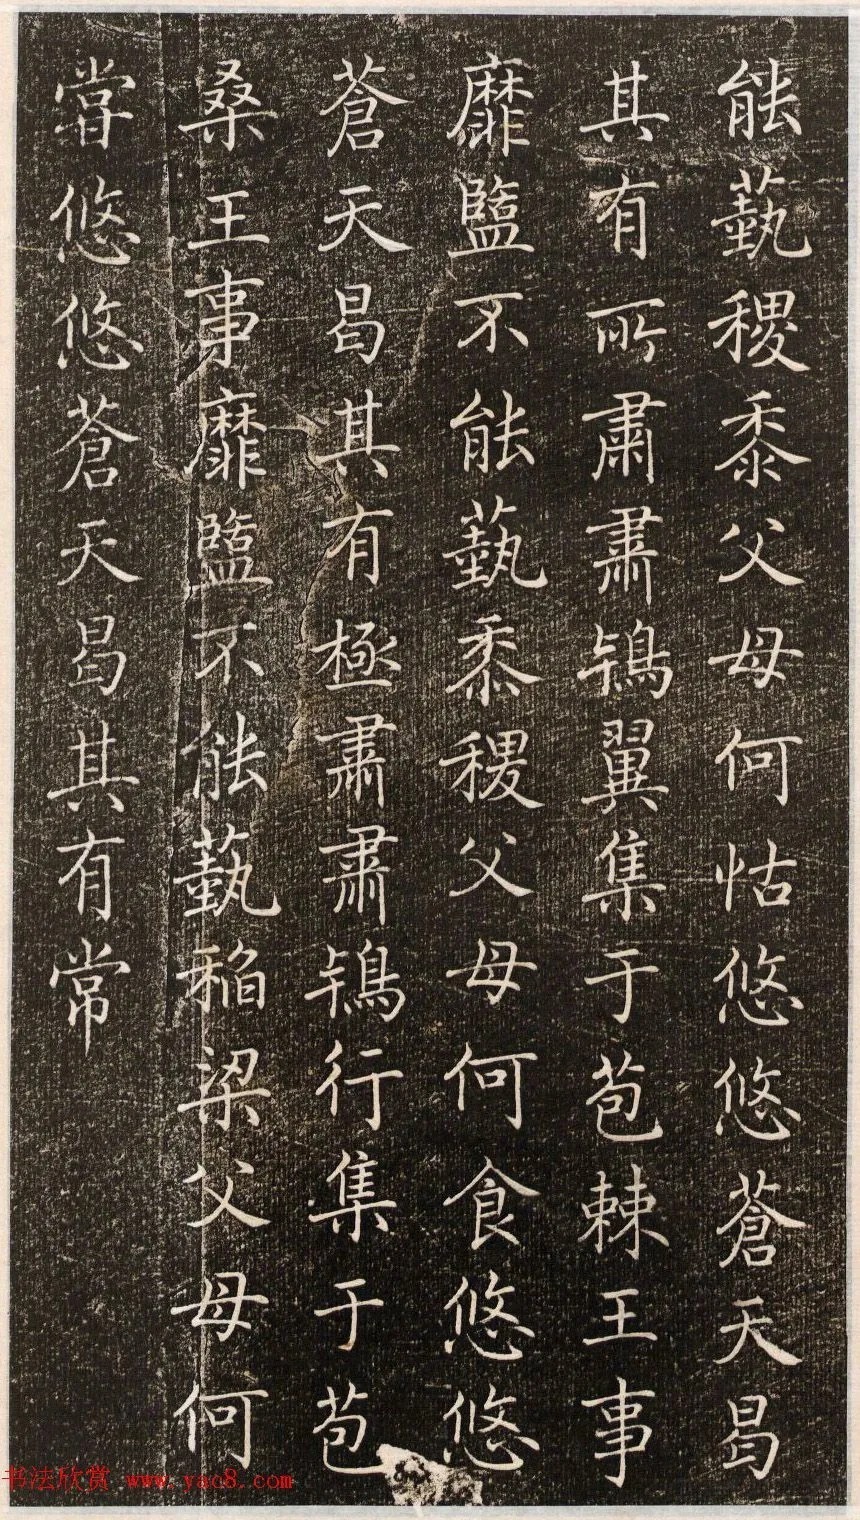 能蓺稷黍父母何怙悠悠蒼天曷
其有所肅肅鴇翼集于苞棘王事
靡盬不能蓺黍稷父母何食悠悠
蒼天曷其有極肅肅鴇行集于苞
桑王事靡盬不能蓺稻粱父母何
甞悠悠蒼天曷其有常
书法欣赏 www.yac8.com